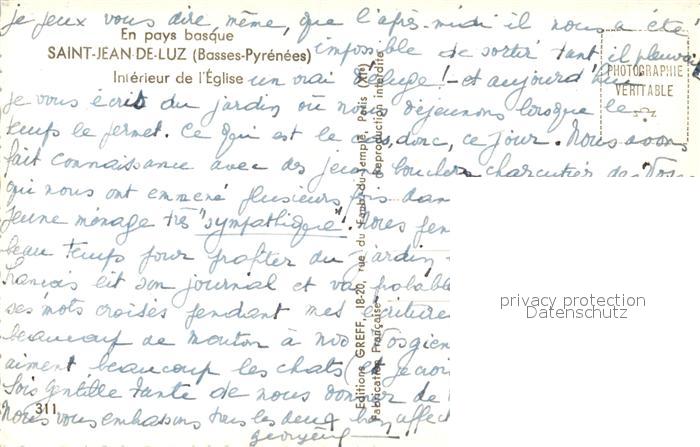 je peux vous dire, même, que l'après-midi il nous a été
En pays basque
SAINT-JEAN-DE-LUZ (Basses-Pyrénées)
Intérieur de l'Église
impossible de sortir tant il pleuvait
un vrai déluge! - et aujourd'hui
PHOTOGRAPHIE
VÉRITABLE
je vous écris du jardin où nous déjeunons lorsque le
temps le permet. Ce qui est le cas, donc, ce jour. Nous avons
fait connaissance avec des jeunes bouchers charcutiers des Vos
qui nous ont emmené plusieurs fois dan
jeune ménage très "sympathique".
beau temps pour profiter du jardin
François lit son journal et va probable
ses mots croisés pendant mes écritures
beaucoup de mouton à nos Vosgien
aiment beaucoup les chats (et je crois
Sois gentille tante de nous donner de
Nous vous embrassons tous les deux bien affect
311
Editions GREFF, 18-20, rue du Faub. du Temple, Paris (XIe)
Fabrication Française - Reproduction interdite
privacy protection
Datenschutz